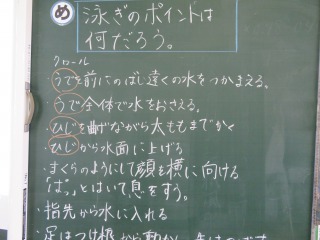 め
泳ぎのポイントは
何だろう。
クロール
・うでを前にのばし遠くの水をつかまえる。
・うで全体で水をおさえる。
・ひじを曲げながら太ももまでかく
・ひじから水面に上げる
・まくらのようにして顔を横に向ける
「ぱっ」とはいて息をすう。
・指先から水に入れる
・足はつけ根から動かし